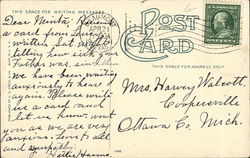 THIS SPACE FOR WRITING MESSAGES
POST
CARD
THIS SPACE FOR ADDRESS ONLY
Dear
a card from
written, but
letting how sick your
Father was, since then
we have been waiting
anxiously to hear
again. Please send
us a card and
let us know what
you as we are very
anxious. Love to all
and sympathy.
Mrs. Harvey Walcott
Coopersville
Ottawa Co. Mich.